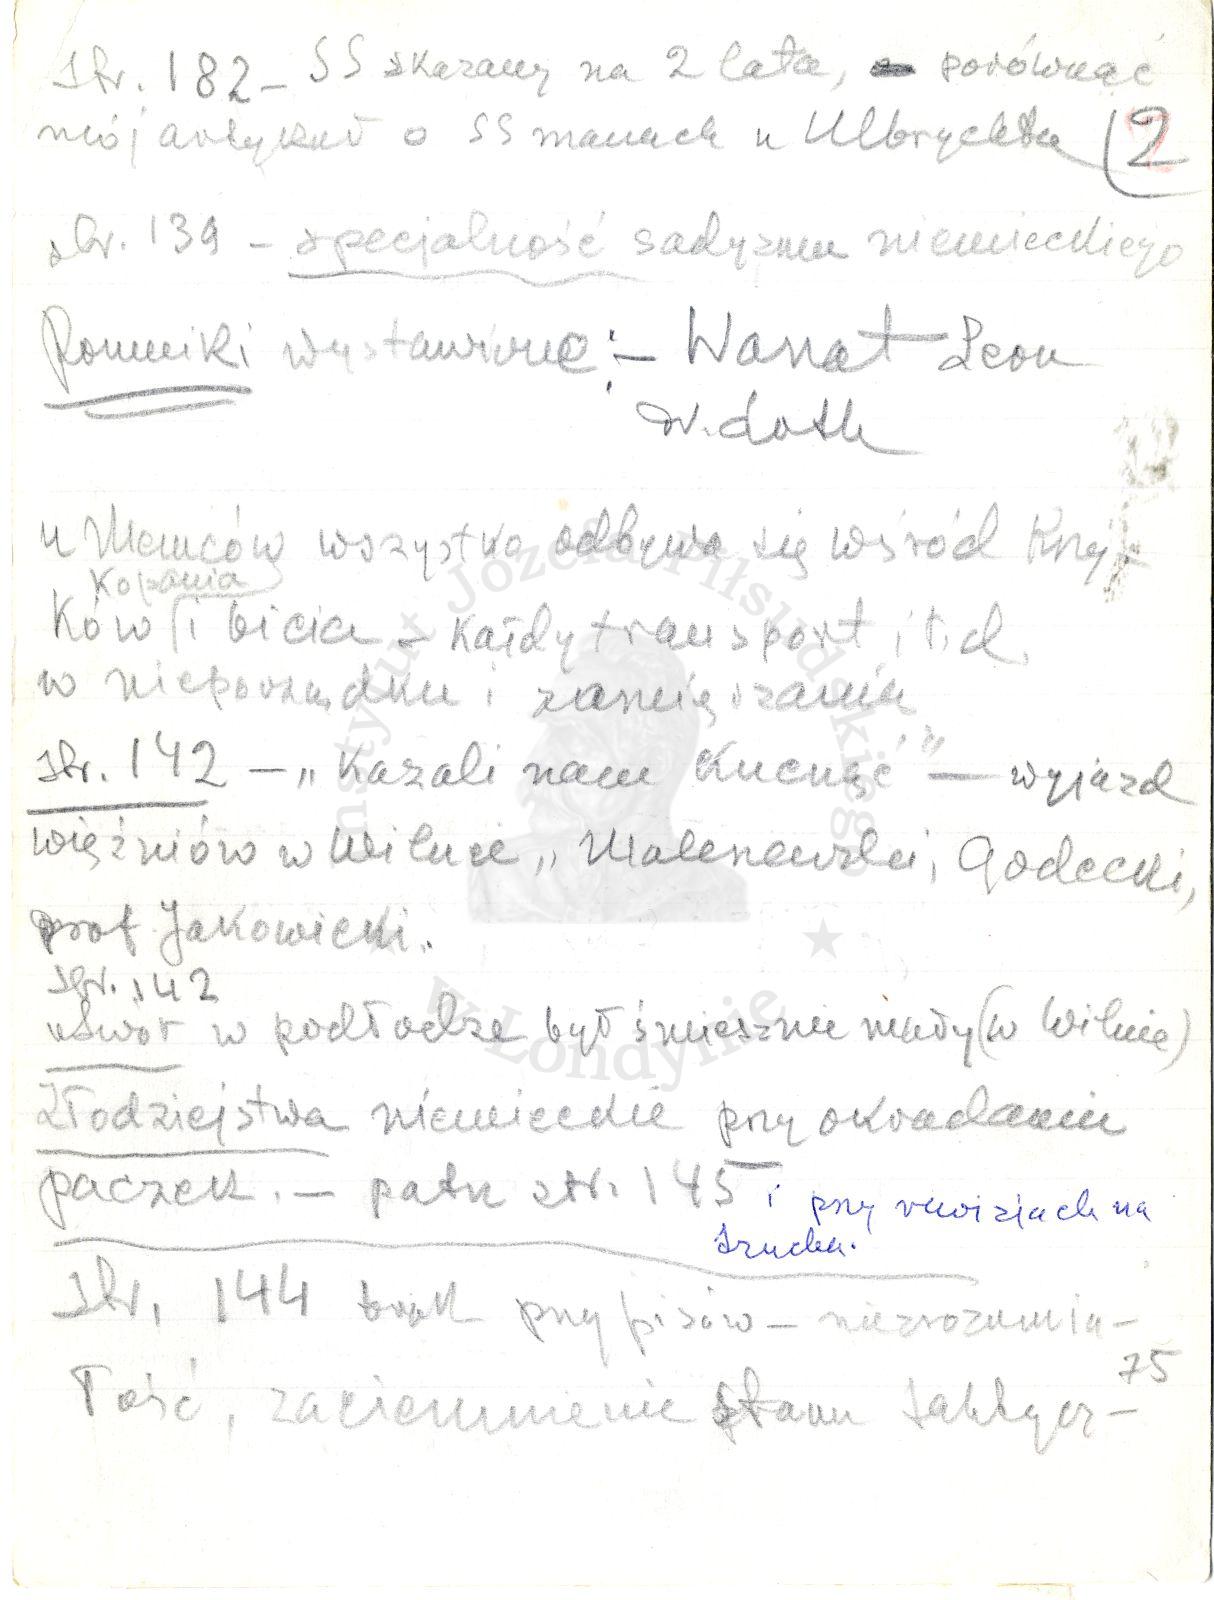 Str. 182 – SS skazany na 2 lata, porównać
mój artykuł o SS manach u Ulbrychta
2
str. 139 – specjalność sadyzmu niemieckiego
Pomniki wystawione: – Wanat Leon
u Niemców wszystko odbywa się wśród krzy-
kopania
ków i bicia – każdy transport i t. d.
w nieporządku i
str. 142 – „Kazali nam kucnąć” – wyjazd
więźniów w Wilnie „ Malenewski, Godecki,
prof Jakowicki.
Str. 142
otwór w podłodze był śmiesznie mały (w Wilnie)
Złodziejstwa niemieckie przy okradaniu
paczek. – patrz str. 145 i przy rewizjach na
Szucha.
Str. 144 brak przypisów – niezrozumia-
75
łość, zaciemnienie stanu faktycz-
Instytut Józefa Piłsudskiego
w Londynie